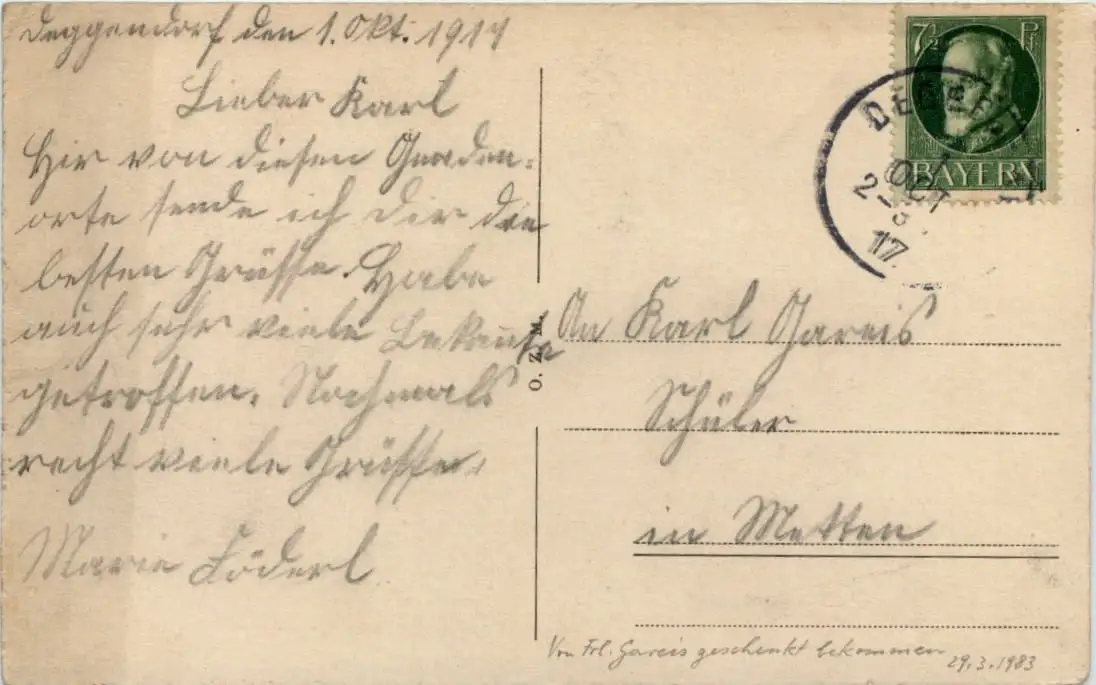 Deggendorf den 1. Okt. 1917
Lieber Karl
Hir von diesen Gnaden-
orte sende ich dir die
besten Grüsse. Habe
auch sehr viele Bekannte
getroffen. Nochmals
recht viele Grüsse.
Marie Föderl
O. Z. M.
7½ Pf
BAYERN
DEGGEN
1
OCT
2-
17
An Karl Gareis
Schüler
in Metten
Von Frl. Gareis geschenkt bekommen
29.3.1983